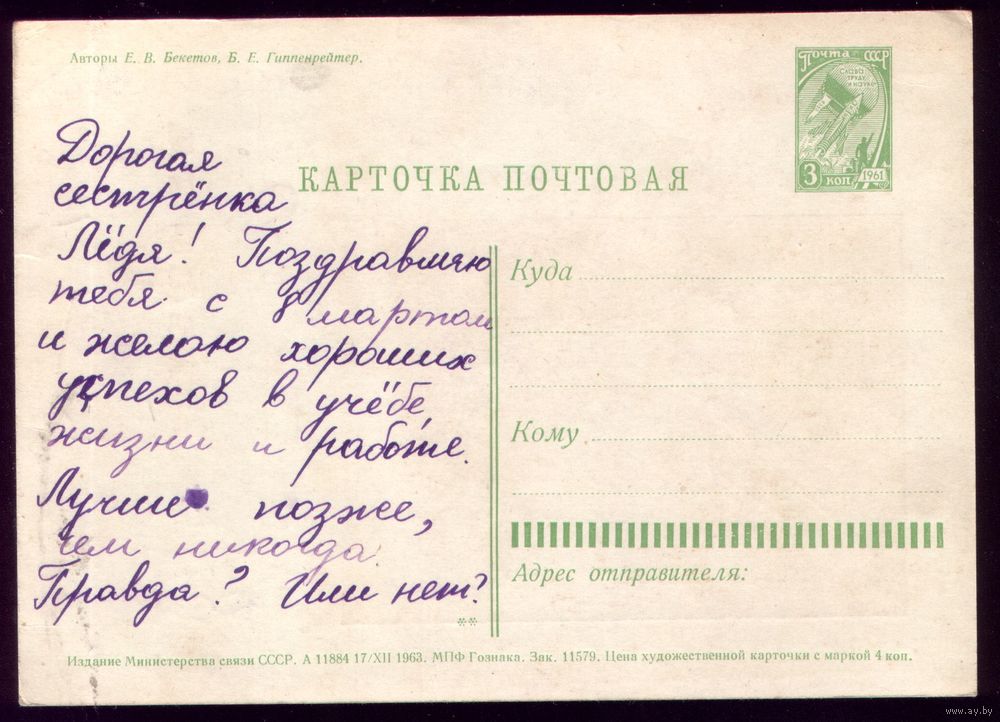 Авторы Е. В. Бекетов, Б. Е. Гиппенрейтер.
Почта СССР
СЛАВА
ТРУДУ
И НАУКЕ
3 КОП
1961
Дорогая
сестрёнка
Лёдя! Поздравляю
тебя с 8 мартом
и желаю хороших
успехов в учёбе,
жизни и работе.
Лучше позже,
чем никогда.
Правда? Или нет?
КАРТОЧКА ПОЧТОВАЯ
Куда
Кому
Адрес отправителя:
**
Издание Министерства связи СССР. А 11884 17/XII 1963. МПФ Гознака. Зак. 11579. Цена художественной карточки с маркой 4 коп.
www.ay.by